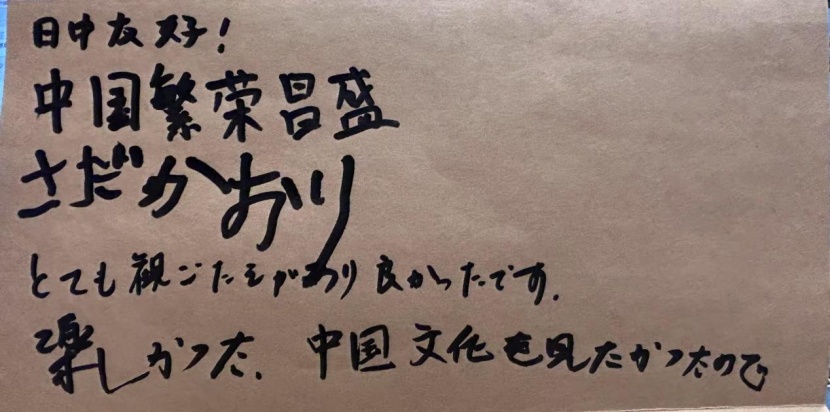 日中友好!
中国繁荣昌盛
さだかおり
とても観ごたえがあり良かったです.
楽しかった. 中国文化を見たかったので